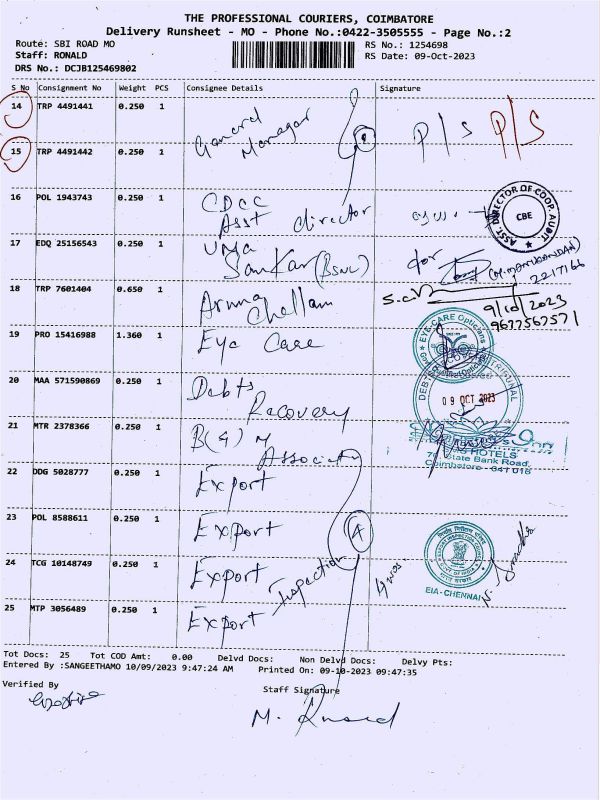 THE PROFESSIONAL COURIERS, COIMBATORE
Delivery Runsheet - MO - Phone No.:0422-3505555 - Page No.:2
Route: SBI ROAD MO RS No.: 1254698
Staff: RONALD RS Date: 09-Oct-2023
DRS No.: DCJB125469802
S No Consignment No Weight PCS Consignee Details Signature
14 TRP 4491441 0.250 1 General Manager P/S P/S
15 TRP 4491442 0.250 1
16 POL 1943743 0.250 1 CDCC Asst director
ASST. DIRECTOR OF COOP. AUDIT CBE
17 EDQ 25156543 0.250 1 Uma Sankar (BSNL) for (M.MANIKANDAN)
2217166
18 TRP 7601404 0.650 1 Aruna Chellam
9/10/2023
9677567571
19 PRO 15416988 1.360 1 Eye Care
EYE-CARE Opticians
20 MAA 571590869 0.250 1 Debts Recovery
09 OCT 2023
21 MTR 2378366 0.250 1 B(4) M
HOTELS
State Bank Road,
Coimbatore - 641 018
22 DDG 5028777 0.250 1 Export
23 POL 8588611 0.250 1 Export 4
24 TCG 10148749 0.250 1 Export Inspection
EIA-CHENNAI
25 MTP 3056489 0.250 1 Export
Tot Docs: 25 Tot COD Amt: 0.00 Delvd Docs: Non Delvd Docs: Delvy Pts:
Entered By :SANGEETHAMO 10/09/2023 9:47:24 AM Printed On: 09-10-2023 09:47:35
Verified By Staff Signature